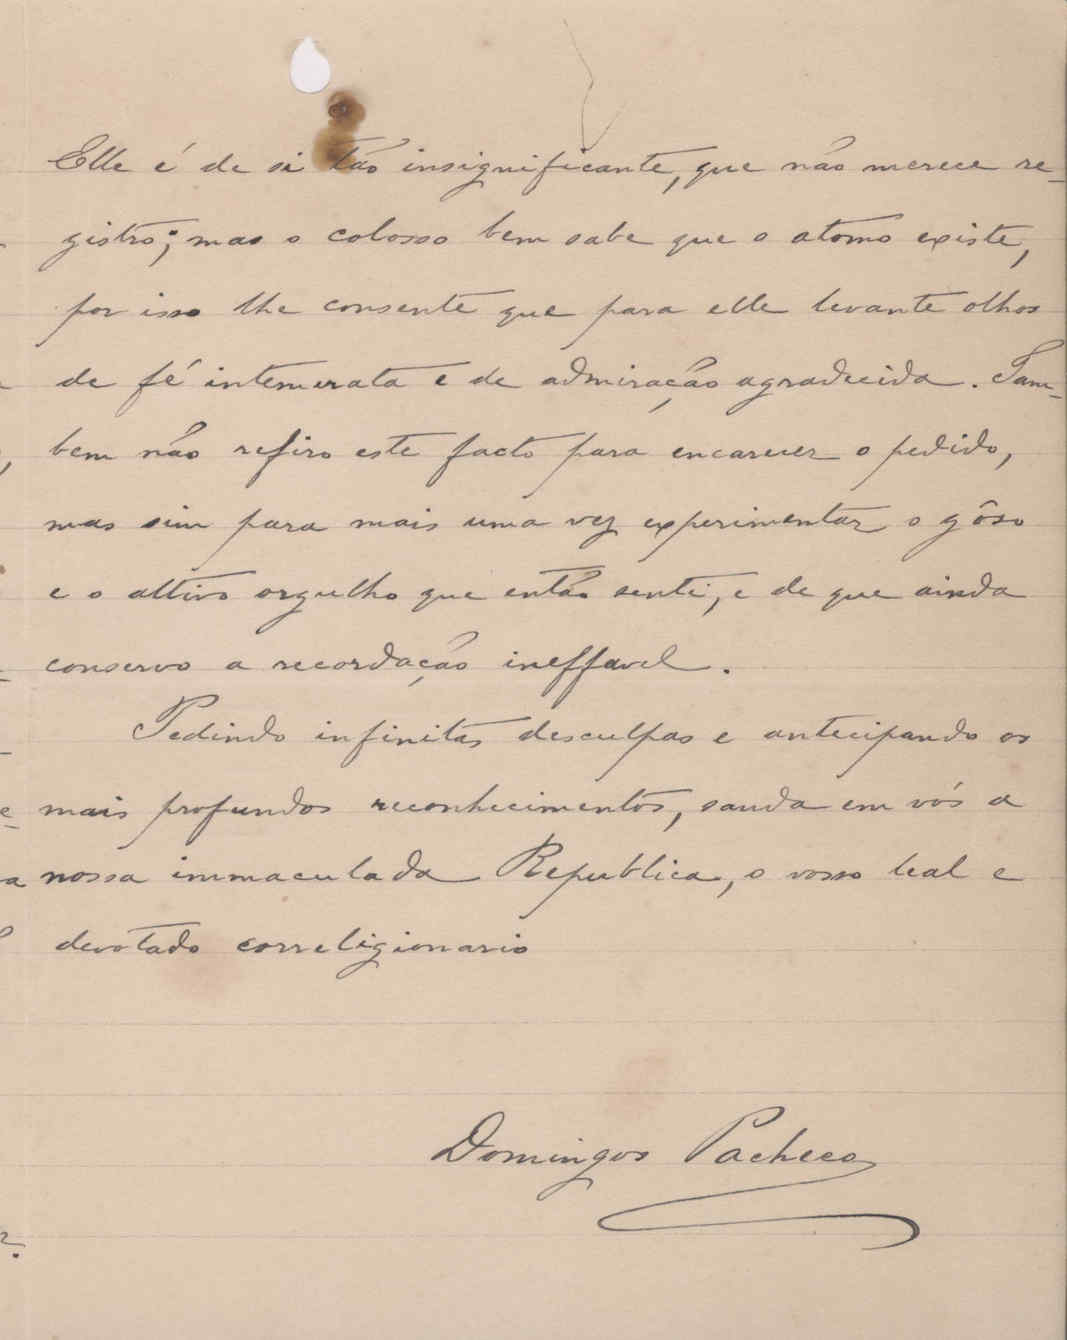 Elle é de si tão insignificante, que não merece re-
gistro; mas o colosso bem sabe que o atomo existe,
por isso lhe consente que para elle levante olhos
de fé intemerata e de admiração agradecida. Tam-
bem não refiro este facto para encarecer o pedido,
mas sim para mais uma vez experimentar o gôso
e o altivo orgulho que então senti, e de que ainda
conservo a recordação ineffavel.
Pedindo infinitas desculpas e antecipando os
mais profundos reconhecimentos, sauda em vós a
nossa immaculada Republica, o vosso leal e
devotado correligionario
Domingos Pacheco